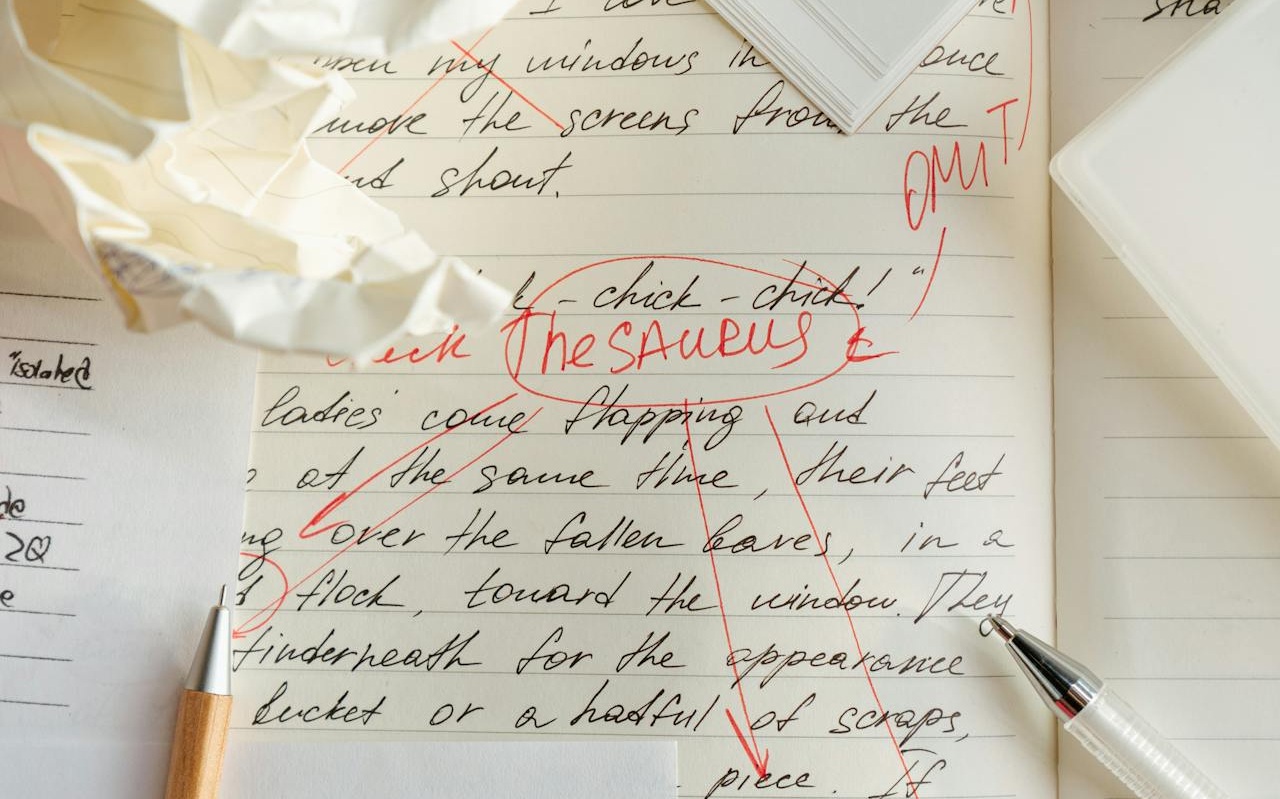 I love
my windows in once
move the screens from the
OMIT
shout.
- chick - chick! "
check TheSAURUS
ladies come flapping and
at the same time, their feet
over the fallen leaves, in a
flock, toward the window. They
underneath for the appearance
bucket or a hatful of scraps,
piece. If
"isolated
2Q